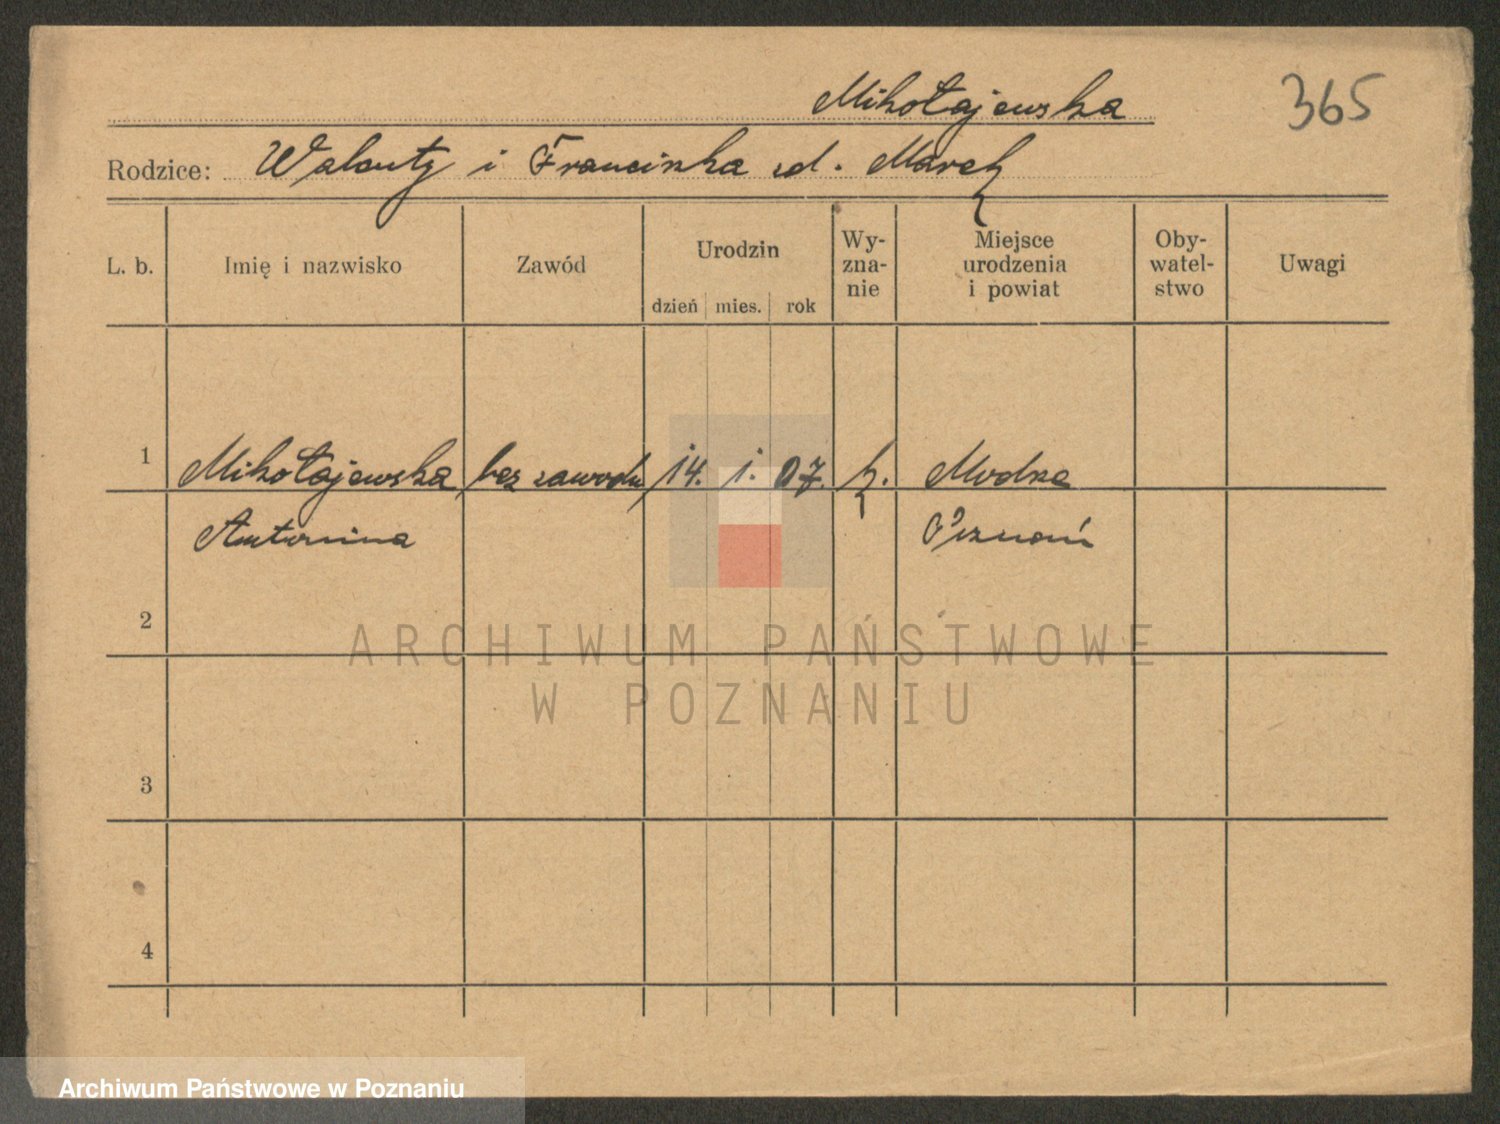 365
Mikołajewska
Rodzice: Walenty i Franciszka zd. Marek
L. b. Imię i nazwisko Zawód Urodzin Wy-zna-nie Miejsce urodzenia i powiat Oby-watel-stwo Uwagi
dzień mies. rok
1 Mikołajewska bez zawodu 14. 1. 07. k. Modrze
Antonina Poznań
2
ARCHIWUM PAŃSTWOWE
W POZNANIU
3
4
Archiwum Państwowe w Poznaniu